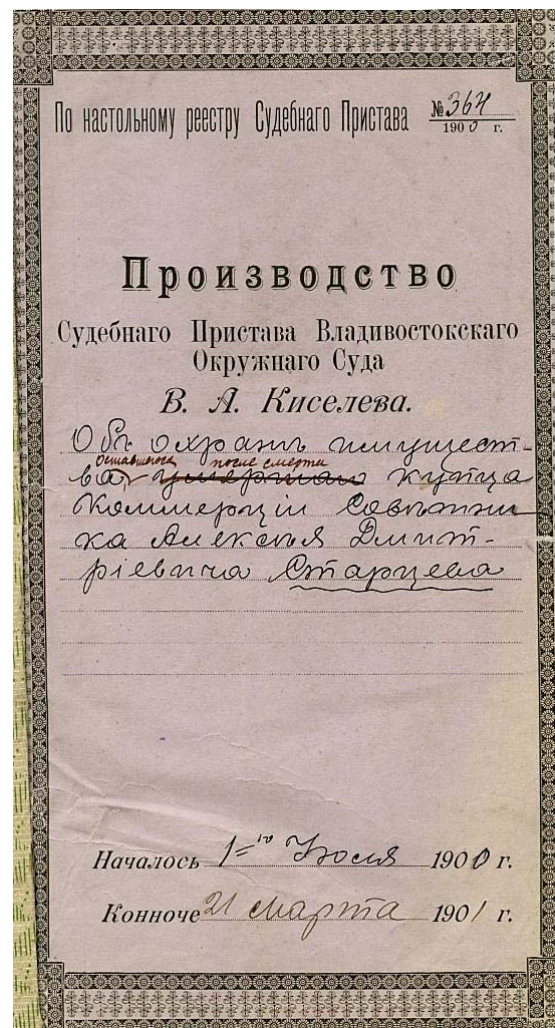 По настольному реестру Судебнаго Пристава № 364
1900 г.
Производство
Судебнаго Пристава Владивостокскаго
Окружнаго Суда
В. А. Киселева.
Объ охранѣ имущест-
оставшагося после смерти
ва умершаго купца
Коммерціи Совѣтни
ка Алексѣя Дмит-
ріевича Старцева
Началось 1=го Іюля 1900 г.
Конноче 21 марта 1901 г.